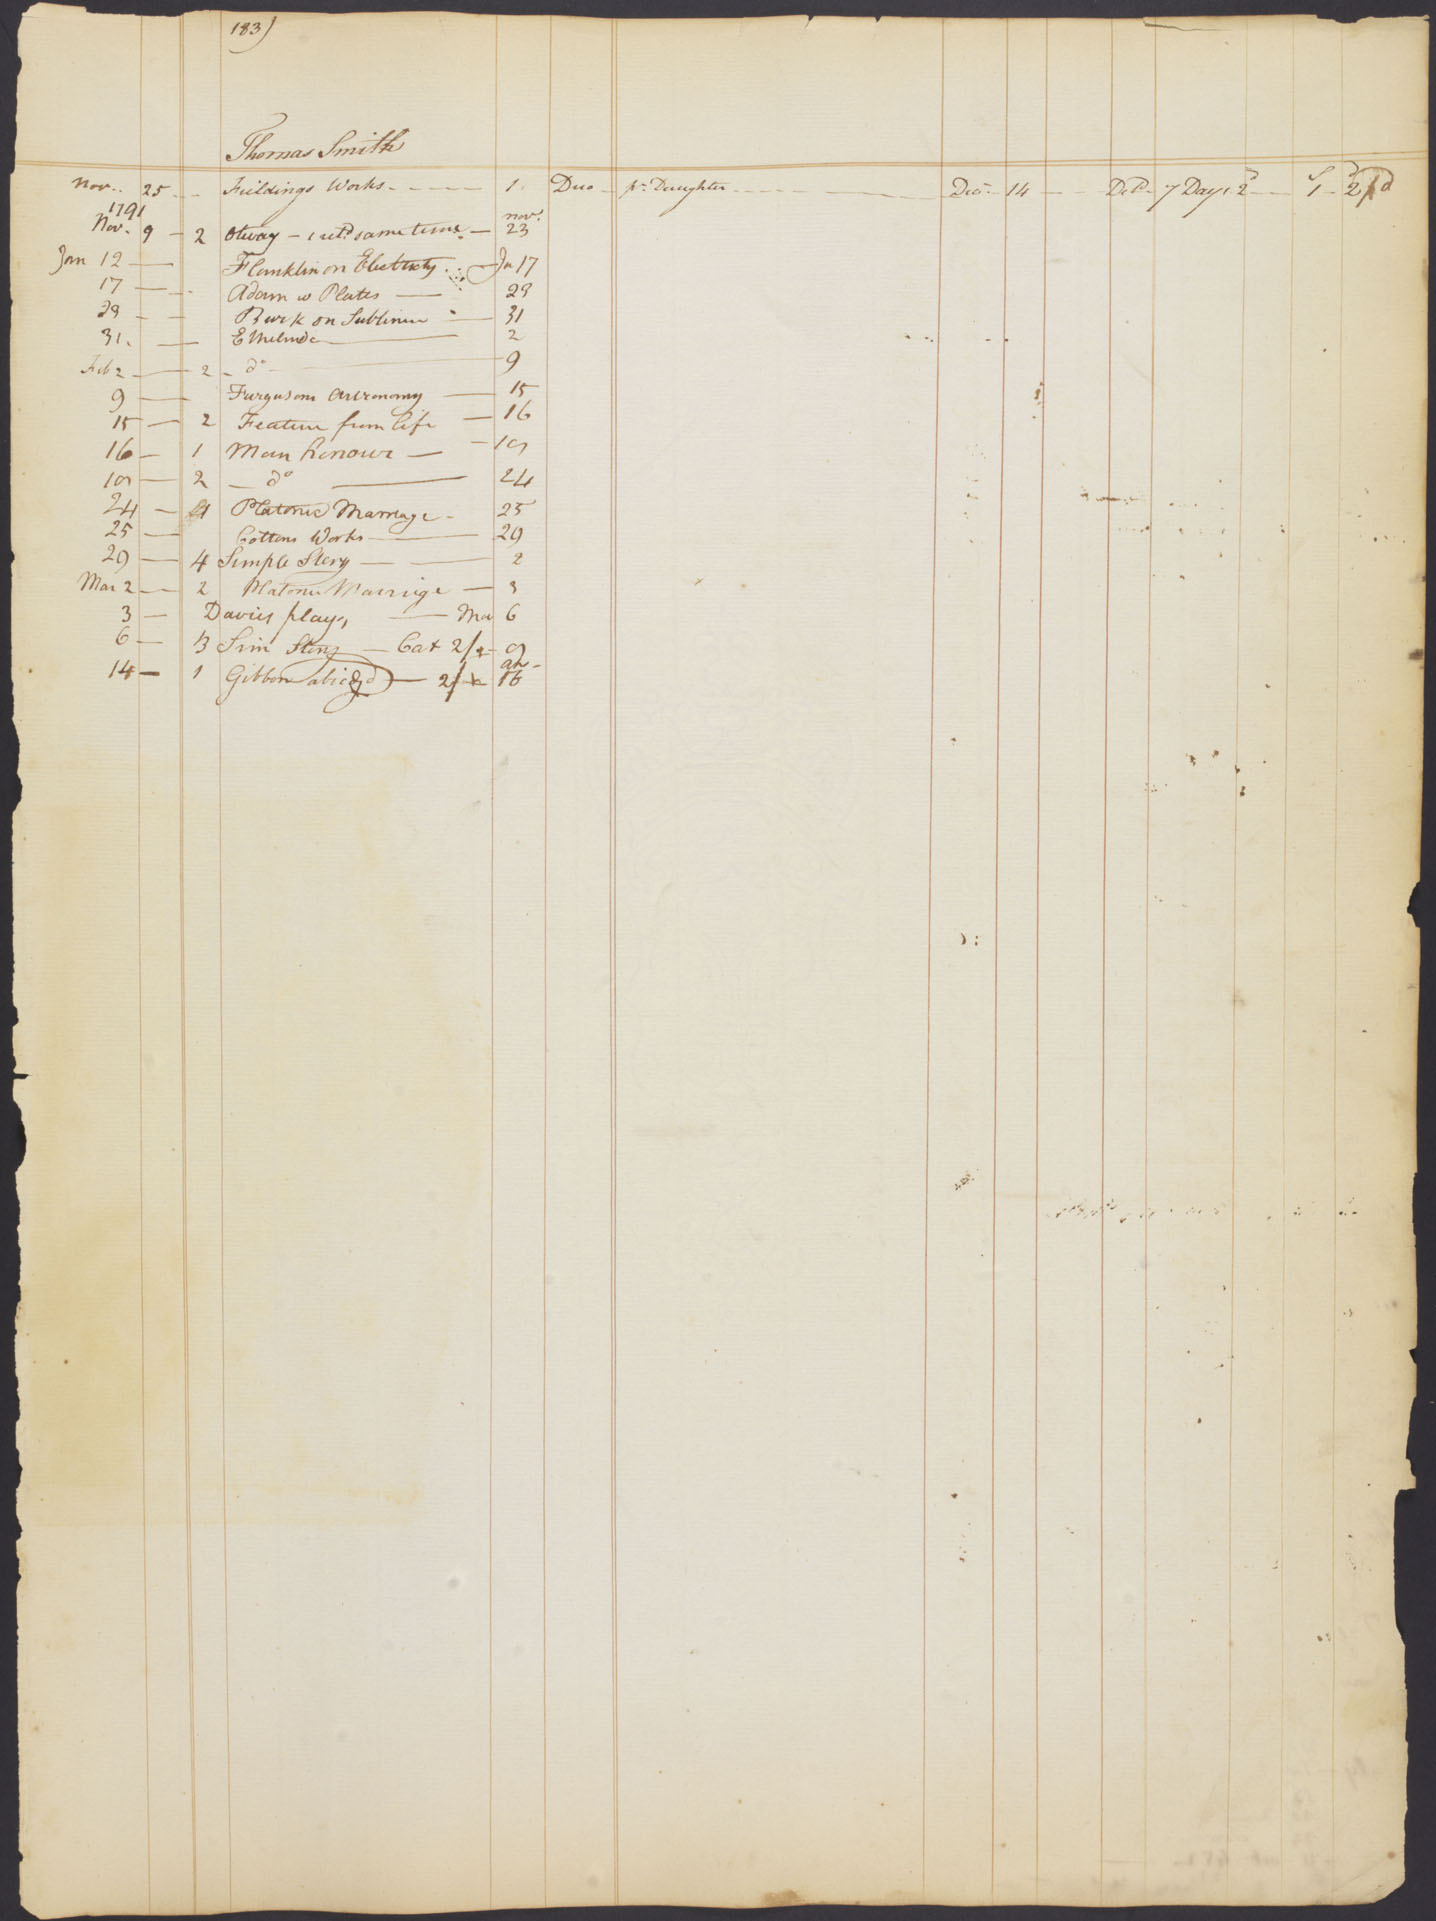 183)
Thomas Smith
Nov. 25 Fieldings Works 1 Duo pr Daughter Decr 14 Detd 7 Days 2d 1 2 pd
1791
Nov. 9 2 Otway 1 retd same time Nov. 23
Jan 12 Flanklin on Electricty Ja 17
17 Adam w Plates 23
23 Burk on Sublime 31
31. Ethelinda 2
Feb 2 2 do 9
9 Fergusons Astronomy 15
15 2 Feature from Life 16
16 1 Man Honour 19
19 2 do 24
24 Platonic Marriage 25
25 Cottons Works 29
29 4 Simple Story 2
Mar 2 2 Platonic Marrige 3
3 Davies plays, Mar 6
6 3 Sim Story Cat 2/ 9
14 1 Gibbon abridgd 2/ 16